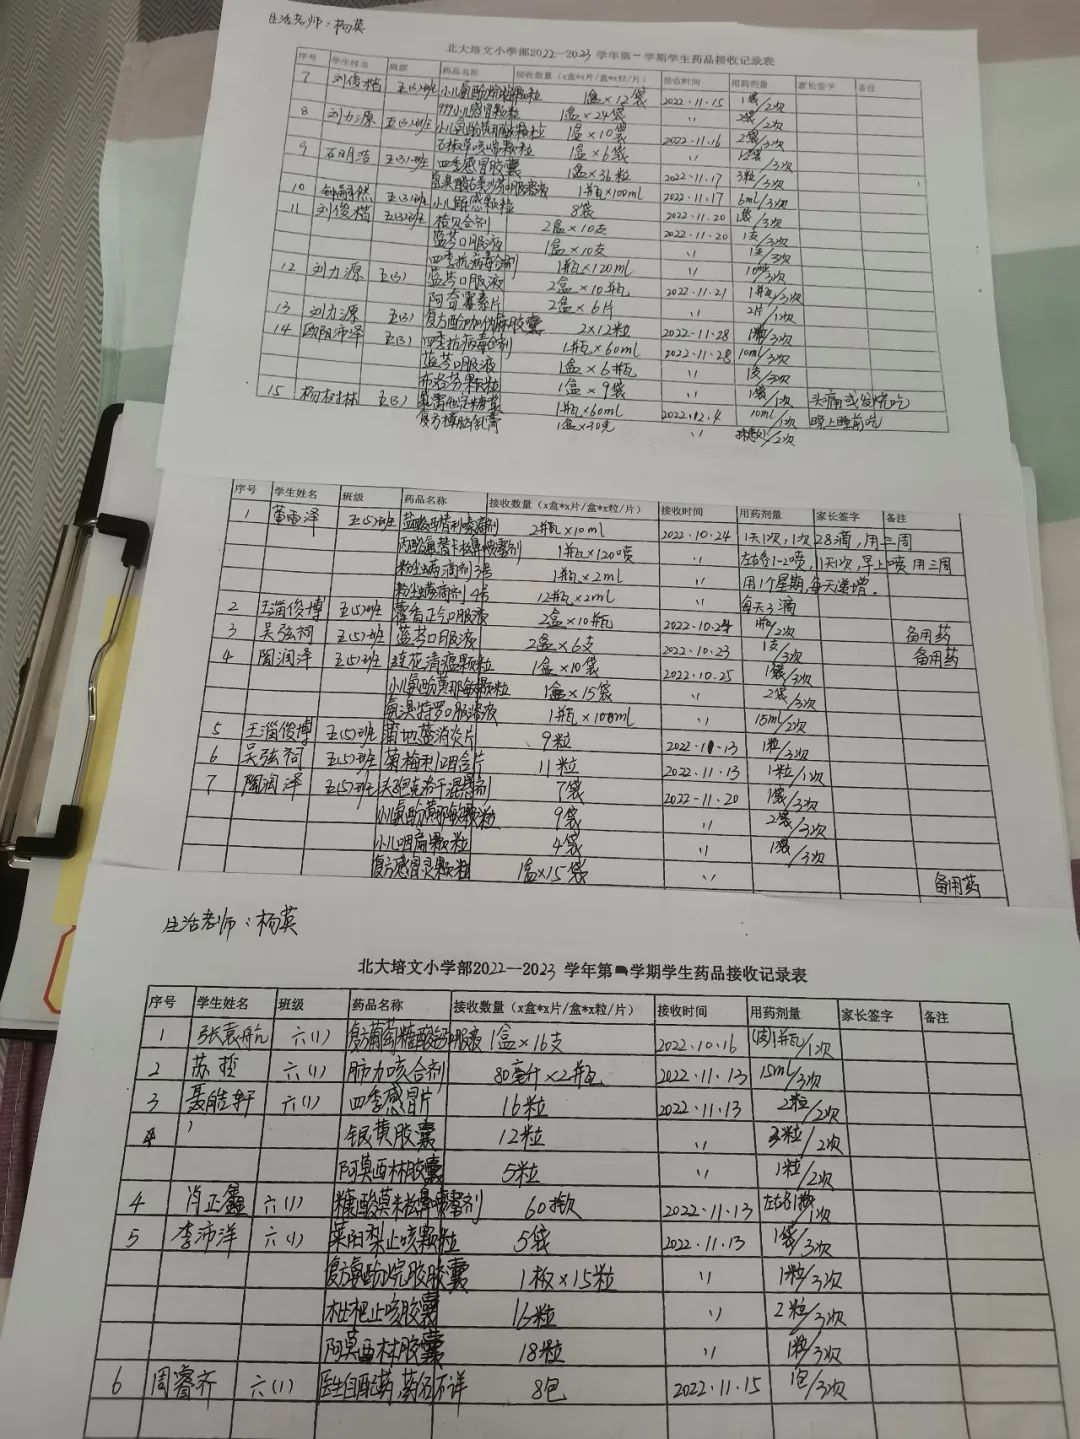 生活老师：杨英
北大培文小学部2022—2023 学年第一学期学生药品接收记录表
序号 学生姓名 班级 药品名称 接收数量（x盒*x片/盒*x粒/片） 接收时间 用药剂量 家长签字 备注
7 刘俊楷 五(3)班 小儿氨酚烷胺颗粒 1盒×12袋 2022.11.15 1袋/2次
999小儿感冒颗粒 1盒×24袋 〃 2袋/2次
8 刘力源 五(3)班 小儿氨酚黄那敏颗粒 1盒×10袋 2022.11.16 2袋/3次
咳喘颗粒 1盒×6袋 〃 /3次
9 石明浩 五(3)班 四季感冒胶囊 1盒×36粒 2022.11.17 3粒/3次
1瓶×100ml 2022.11.17 6ml/3次
10 五(3)班 小儿解感颗粒 8袋 2022.11.20 1袋/3次
11 刘俊楷 五(3)班 桔贝合剂 2盒×10支 2022.11.20 1支/3次
蓝芩口服液 1盒×10支 〃 1支/3次
四季抗病毒合剂 1瓶×120ml 〃 /3次
12 刘力源 五(3) 蓝芩口服液 2盒×10瓶 2022.11.21 1瓶/3次
阿奇霉素片 2盒×6片 〃 2片/1次
13 刘力源 五(3) 复方酚咖伪麻胶囊 2×12粒 2022.11.28 1粒/3次
14 欧阳沛泽 五(3) 四季抗病毒合剂 1瓶×60ml 2022.11.28 10ml/3次
蓝芩口服液 1盒×6瓶 〃 1支/3次
布洛芬颗粒 1盒×9袋 〃 1袋/1次 头痛或发烧吃
15 杨树林 五(3) 氯雷他定糖浆 1瓶×60ml 2022.12.4 10ml/1次 晚上睡前吃
复方樟脑乳膏 1盒×30克 〃 /2次
序号 学生姓名 班级 药品名称 接收数量（x盒*x片/盒*x粒/片） 接收时间 用药剂量 家长签字 备注
1 董雨泽 五(5)班 盐酸西替利嗪滴剂 2瓶×10ml 2022.10.24 1天1次，1次28滴，用三周
丙酸氟替卡松鼻喷雾剂 1瓶×120喷 〃 左右各1-2喷，1天1次，早上喷 用三周
粉尘螨滴剂3号 1瓶×2ml 〃 用1个星期，每天递增。
粉尘螨滴剂4号 12瓶×2ml 〃 每天3滴
2 王淄俊博 五(5)班 藿香正气口服液 2盒×10瓶 2022.10.24 1瓶/2次 备用药
3 吴弦祠 五(5)班 蓝芩口服液 2盒×6支 2022.10.23 1支/3次 备用药
4 陶润泽 五(5)班 连花清瘟颗粒 1盒×10袋 2022.10.25 1袋/3次
小儿氨酚黄那敏颗粒 1盒×15袋 〃 2袋/3次
氨溴特罗口服溶液 1瓶×100ml 〃 15ml/2次
5 王淄俊博 五(5)班 蒲地蓝消炎片 9粒 2022.11.13 1粒/3次
6 吴弦祠 五(5)班 菊梅利咽含片 11粒 2022.11.13 1粒/1次
7 陶润泽 五(5)班 头孢克洛干混悬剂 7袋 2022-11.20 1袋/3次
小儿氨酚黄那敏颗粒 9袋 〃 2袋/3次
小儿咽扁颗粒 4袋 〃 1袋/3次
复方感冒灵颗粒 1盒×15袋 〃 备用药
生活老师：杨英
北大培文小学部2022—2023 学年第一学期学生药品接收记录表
序号 学生姓名 班级 药品名称 接收数量（x盒*x片/盒*x粒/片） 接收时间 用药剂量 家长签字 备注
1 张袁舟亢 六(1) 复方葡萄糖酸钙口服液 1盒×16支 2022.10.16 1瓶/1次
2 苏哲 六(1) 肺力咳合剂 80毫升×2瓶 2022.11.13 15ml/3次
3 聂皓轩 六(1) 四季感冒片 16粒 2022.11.13 2粒/2次
4 银黄胶囊 12粒 〃 3粒/2次
阿莫西林胶囊 5粒 〃 1粒/2次
4 肖正鑫 六(1) 糠酸莫米松鼻喷雾剂 60揿 2022.11.13 左右各1揿/1次
5 李沛洋 六(1) 莱阳梨止咳颗粒 5袋 2022.11.13 1袋/3次
复方氨酚烷胺胶囊 1板×15粒 〃 1粒/3次
枇杷止咳胶囊 16粒 〃 2粒/3次
阿莫西林胶囊 18粒 〃 1粒/3次
6 周睿齐 六(1) 医生自配药，药名不详 8包 2022.11.15 1包/3次